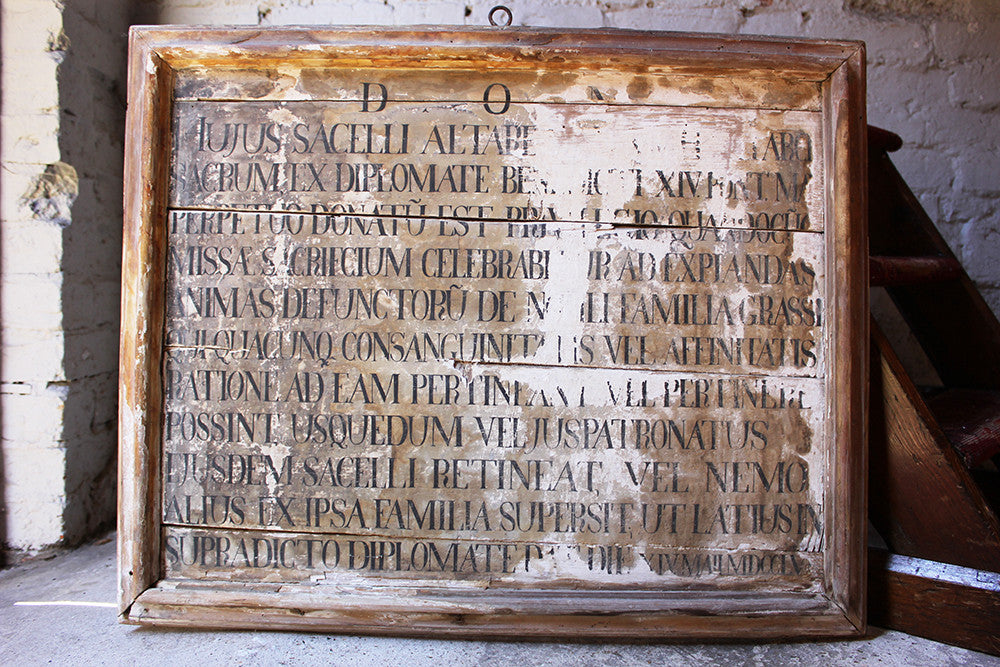 D O
SACELLI ALTARE
SACRUM, EX DIPLOMATE XIV
PERPETUO DONATŨ EST
MISSÆ CELEBRABI UR AD EXPIANDAS
ANIMAS DEFUNCTORŨ DE FAMILIA GRASSI
QUI QUACUNQ CONSANGUINIT IS VEL AFFINITATIS
RATIONE AD EAM PERTINEANT VEL PERTINERE
POSSINT, USQUEDUM VEL JUSPATRONATUS
EJUSDEM SACELLI RETINEAT, VEL NEMO
ALIUS EX IPSA FAMILIA SUPERSIT, UT LATIUS IN
SUPRADICTO DIPLOMATE DIE